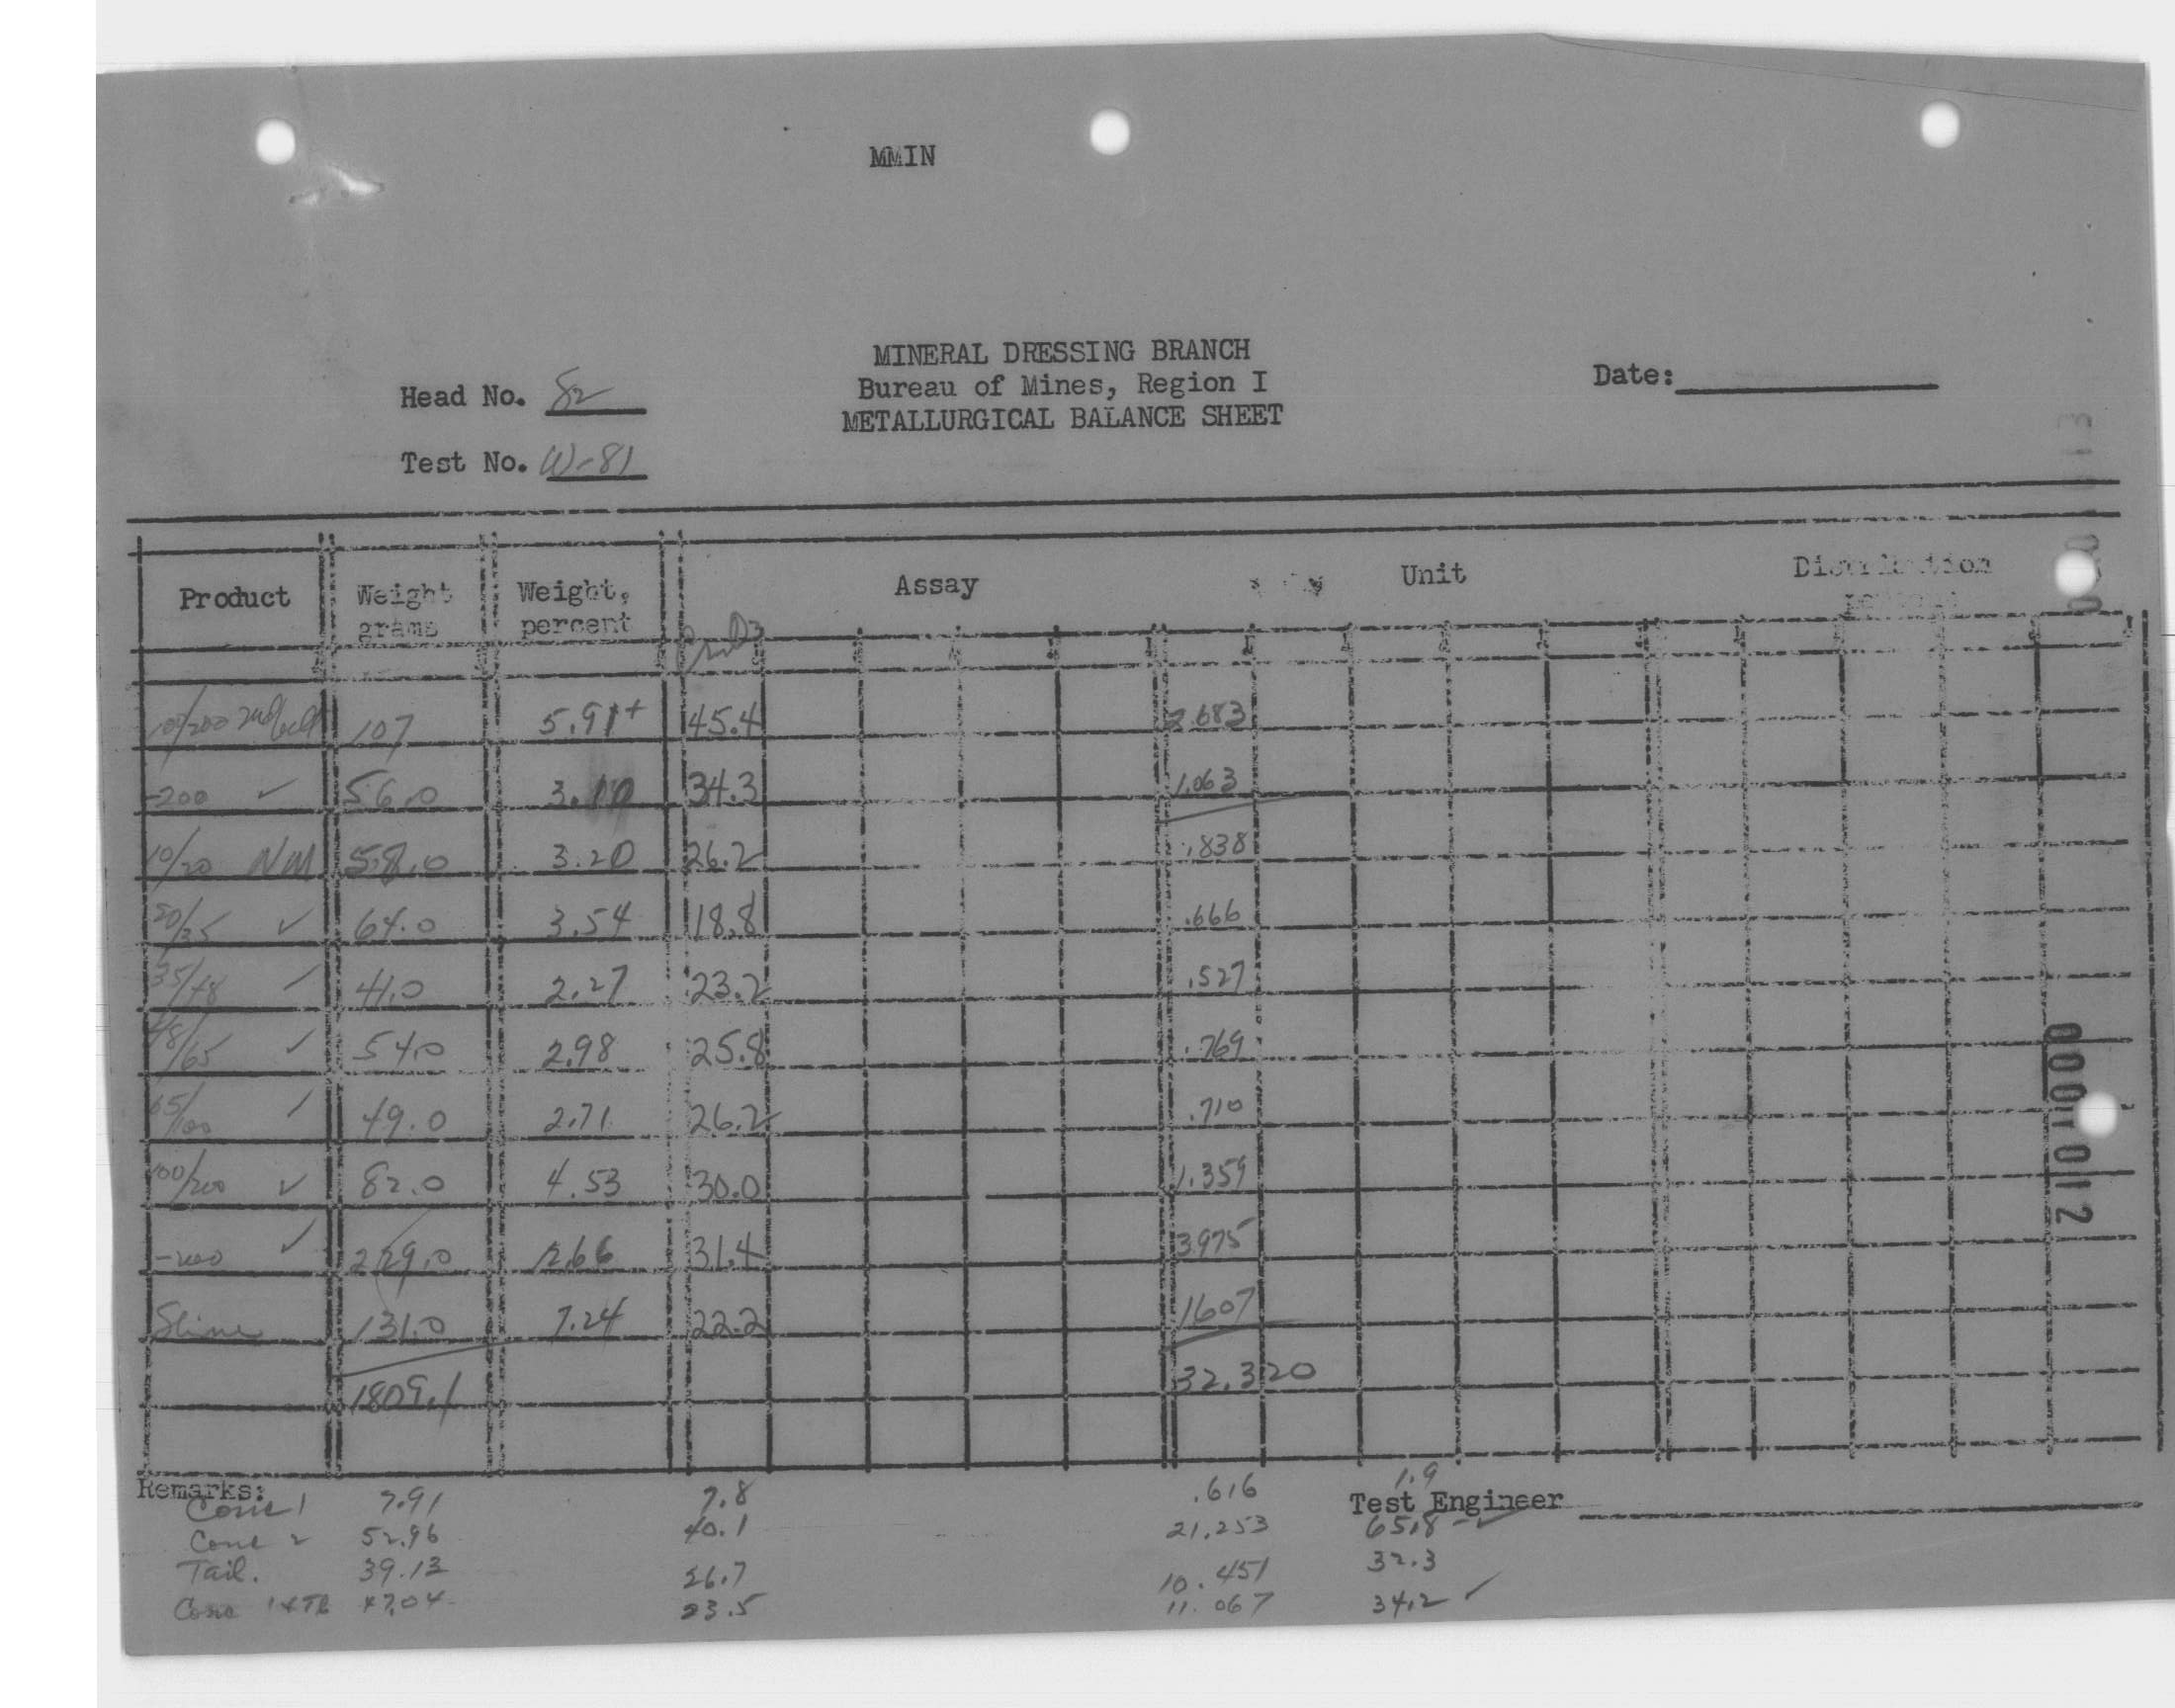 MMIN
MINERAL DRESSING BRANCH
Head No. 82 Bureau of Mines, Region I Date:
METALLURGICAL BALANCE SHEET
Test No. W-81
Product Weight grams Weight, percent Assay Unit Distribution
100/200 107 5.91+ 45.4 2.683
-200 ✓ 56.0 3.10 34.3 1.063
10/20 NM 58.0 3.20 26.2 .838
20/35 ✓ 64.0 3.54 18.8 .666
35/48 ✓ 41.0 2.27 23.2 .527
48/65 ✓ 54.0 2.98 25.8 .769
65/100 ✓ 49.0 2.71 26.2 .710
100/200 ✓ 82.0 4.53 30.0 1.359
-200 ✓ 229.0 12.66 31.4 3.975
Slime 131.0 7.24 22.2 1607
1809.1 32.320
Remarks:
Test Engineer
Conc 1 7.91 7.8 .616 1.9
Conc 2 52.96 40.1 21.253 65.8 ✓
Tail. 39.13 26.7 10.451 32.3
Conc 1+Tl 47.04 23.5 11.067 34.2 ✓
0000 1012